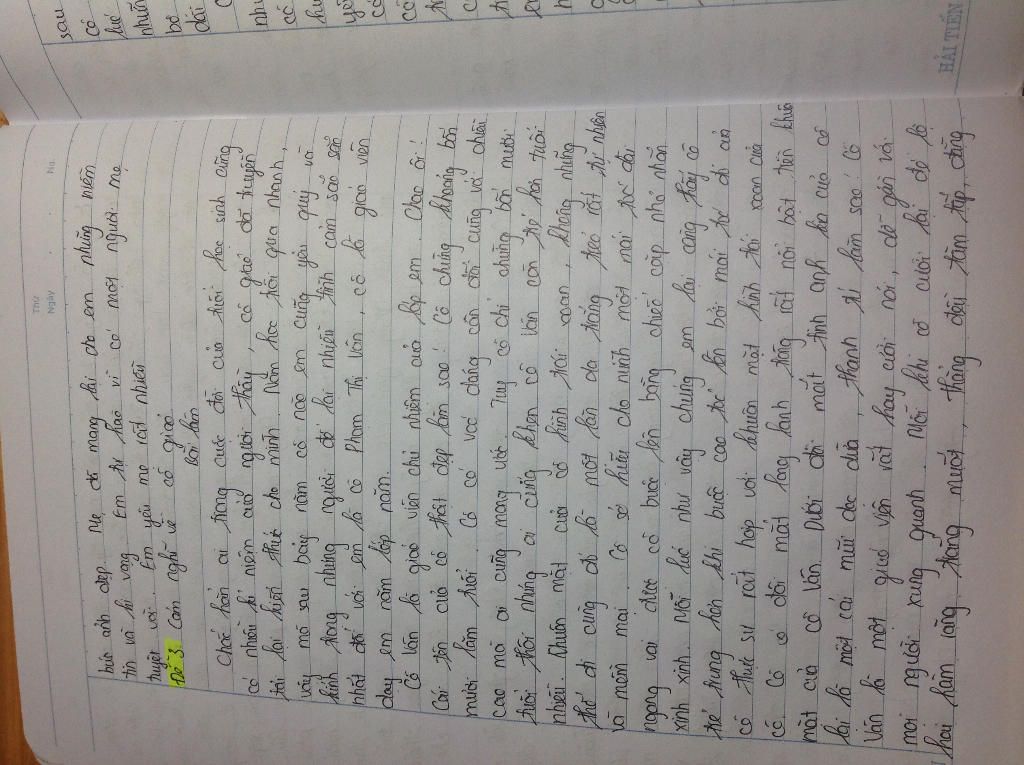 sau
có
lúc
nhữn
bơ
dài
Thứ
Ngày
No.
HẢI TIẾN
bức ảnh đẹp. Mẹ đã mang lại cho em những niềm
tin và hi vọng. Em tự hào vì có một người mẹ
tuyệt vời. Em yêu mẹ rất nhiều
Đề 3. Cảm nghĩ về cô giáo
Bài làm
Chắc hẳn ai trong cuộc đời của tuổi học sinh cũng
có nhiều kỉ niệm với người thầy, cô giáo đã truyền
tải lại kiệt thức cho mình. Năm học trôi qua nhanh,
vậy mà sau bảy năm cô nào em cũng yêu quý và
kính trọng nhưng người để lại nhiều tình cảm sâu sắc
nhất đối với em là cô Phạm Thị Vân, cô là giáo viên
dạy em năm lớp năm.
Cô Vân là giáo viên chủ nhiệm của lớp em. Chao ôi!
Cái tên của cô thật đẹp làm sao! Cô chừng khoảng bốn
mươi lăm tuổi. Cô có vóc dáng cân đối cùng với chiều
cao mà ai cũng mong ước. Tuy cô chỉ chừng bốn mươi
tuổi nhưng ai cũng khen cô Vân còn trẻ hơn tuổi
nhiều. Khuôn mặt của cô hình trái xoan, không những
thế đi cùng đó là một làn da trắng trẻo rất tự nhiên
và mềm mại. Cô sở hữu cho mình một mái tóc dài
ngang vai được cô buộc lên bằng chiếc cặp nhỏ nhắn
xinh xinh. Mỗi lúc như vậy chúng em lại càng thấy cô
trẻ trung hơn khi buộc cao tóc lên bởi mái tóc đó của
cô thực sự rất hợp với khuôn mặt hình trái xoan của
cô. Cô có đôi mắt long lanh trông rất nổi bật trên khuô
mặt của cô Vân. Dưới đôi mắt tinh anh kia của cô
lại là một cái mũi dọc dừa, thanh tú làm sao! Cô
Vân là một giáo viên rất hay cười nói, dễ gần với
mọi người xung quanh. Mỗi khi cô cười lại để lộ
hai hàm răng trắng muốt, thẳng đều tăm tắp, đằng